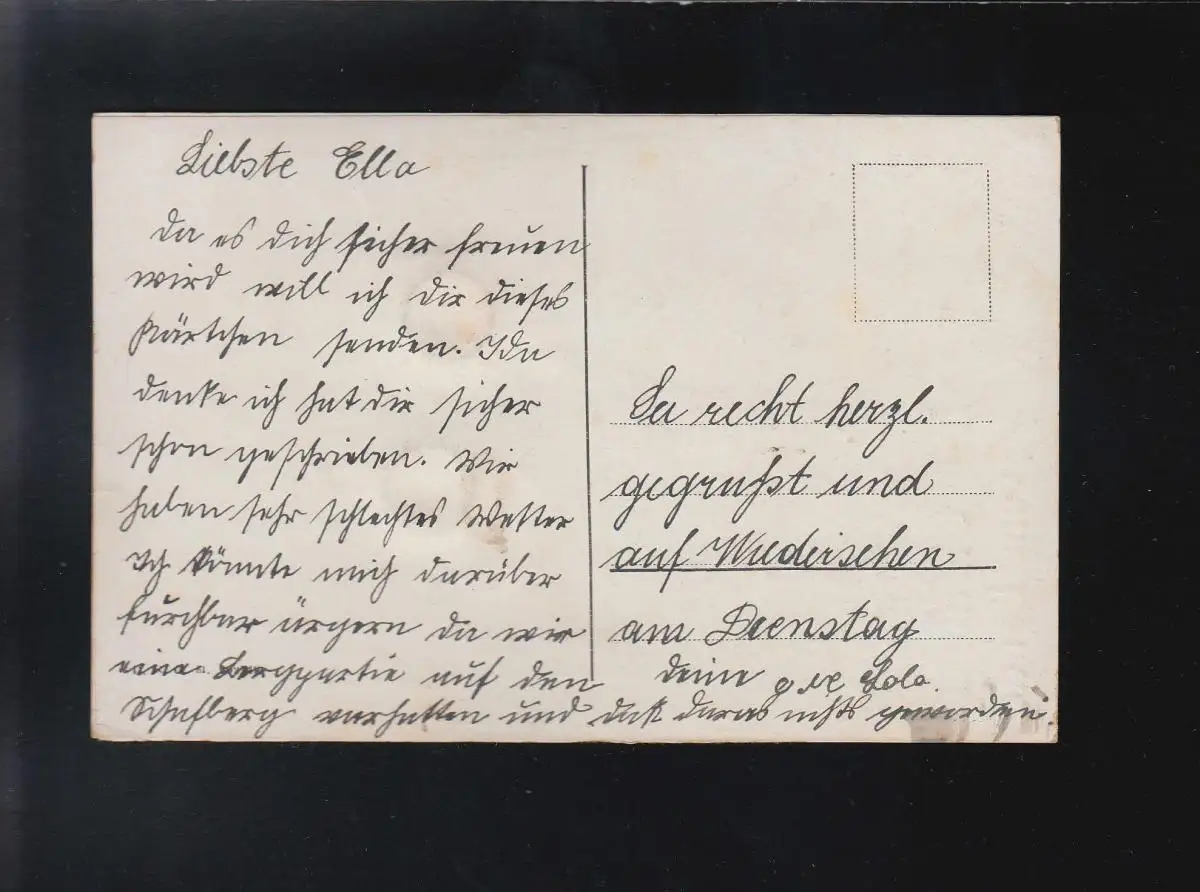 Liebste Ella
Da es dich sicher freuen
wird will ich dir dieses
Kärtchen senden. Ida
denke ich hat dir sicher
schon geschrieben. Wir
haben sehr schlechtes Wetter
Ich könnte mich darüber
furchbar ärgern da wir
eine Bergpartie auf den
Schafberg vorhatten und daß daras nichts geworden.
Sei recht herzl.
gegrußt und
auf Wiedersehen
am Dienstag
deine Lola.